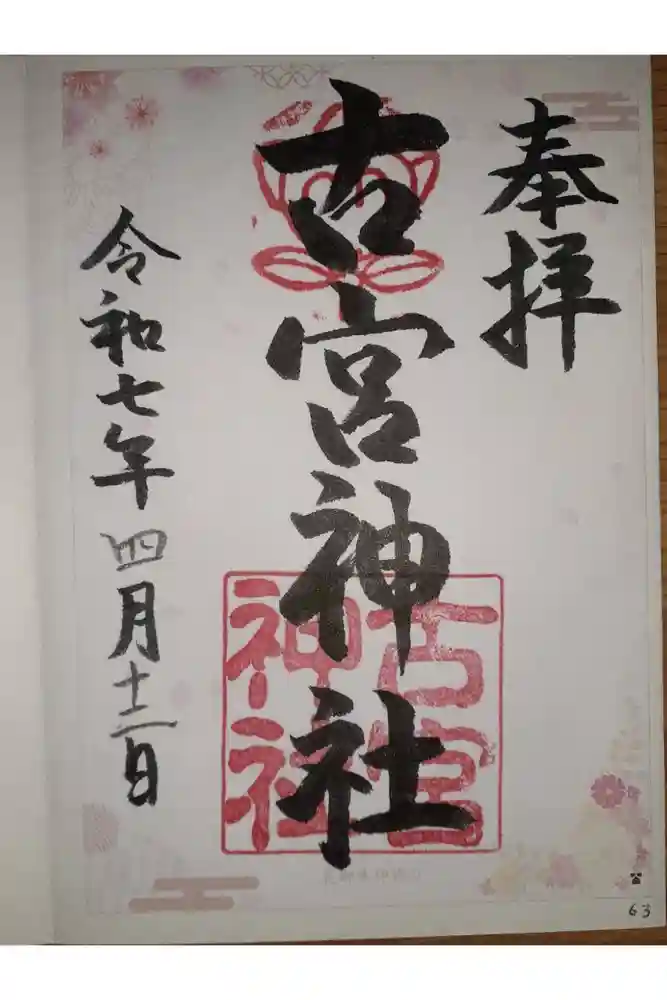 奉拝
古宮神社
古宮
神社
令和七年四月十二日
63